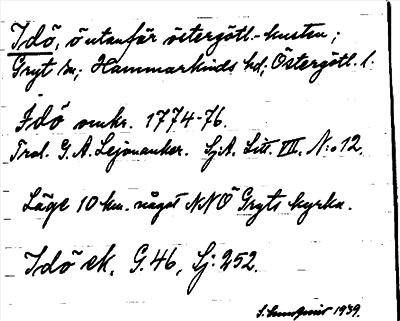 Idö, ö utanför östergötl.-kusten;
Gryt sn; Hammarkinds hd; Östergötl. l.
Idö omkr. 1774-76.
Trol. G. A. Lejonanker. Sj.A. Litt. VII. N:o 12.
Läge 10 km. något NNÖ Gryts kyrka.
Idö ek. G. 46, Sj: 252.
1939.